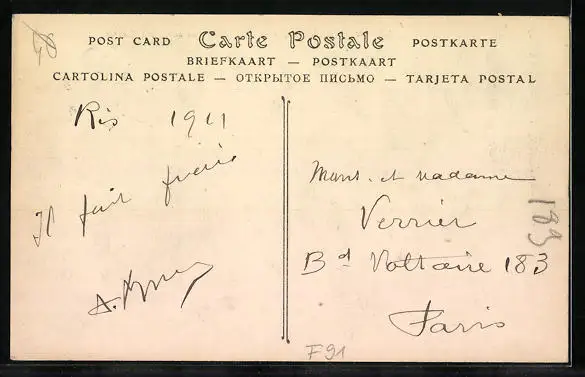 48
POST CARD Carte Postale POSTKARTE
BRIEFKAART — POSTKAART
CARTOLINA POSTALE — ОТКРЫТОЕ ПИСЬМО — TARJETA POSTAL
Ris 1911
Il fait
Mons. et Madame
Verrier
Bd Voltaire 183
Paris
183
F91